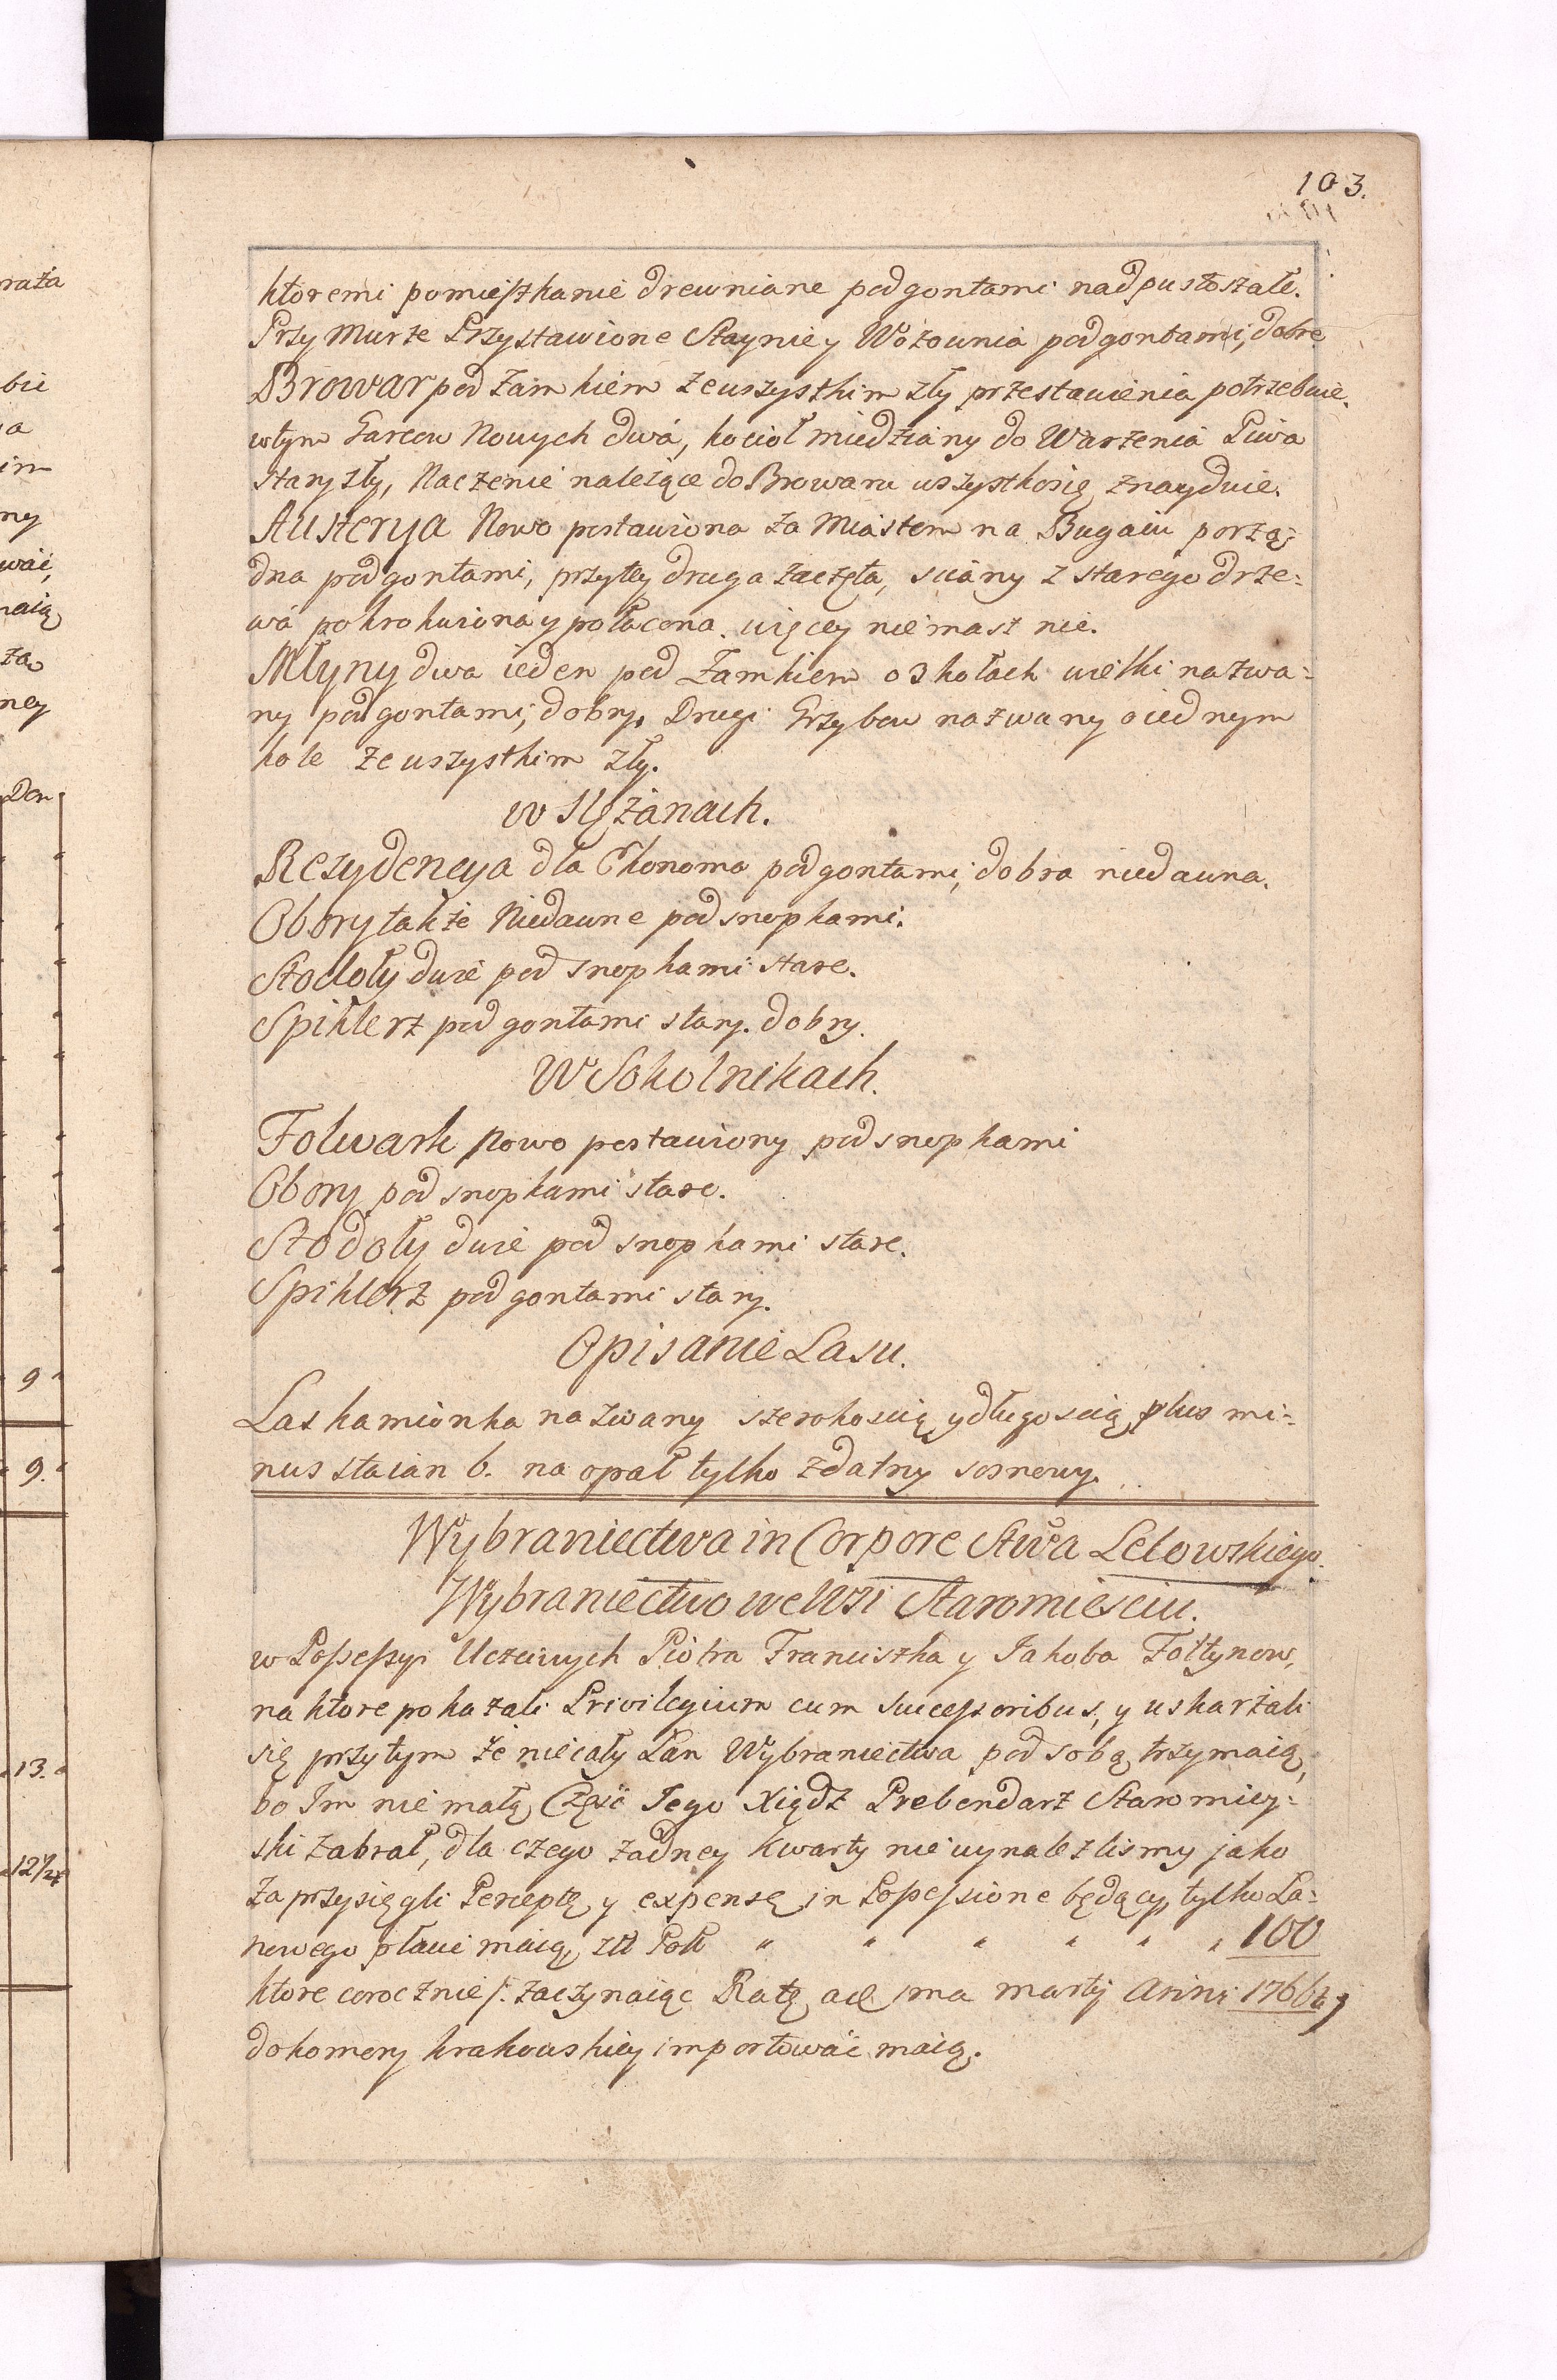 103.
ktoremi pomieszkanie drewniane pod gontami nadpustoszałe.
Przy Murze Przystawione Staynie y Wozownia pod gontami, dobre
Browar pod Zamkiem ze wszystkim zły przestawienia potrzebuie.
w tym Garcow Nowych dwá, kocioł miedziany do Warzenia Piwa
stary zły, Naczenie należące do Browaru wszystko się znayduie.
Austerya Nowo postawiona za Miastem na Bugaiu porzą:
dna pod gontami, przy tey druga zaczęta, sciány z starego drze:
wá pokrokwiona y połacona. więcey nie masz nic.
Młyny dwa ieden pod Zamkiem o 3 kołach wielki nazwa:
ny pod gontami, dobry. Drugi Grzybow nazwany o iednym
kole ze wszystkim zły.
w Slężanach.
Rezydencya dla Ekonoma pod gontami, dobra niedawna.
Obory także Niedawne pod snopkami.
Stodoły dwie pod snopkami stare.
Spiklerz pod gontami stary. dobry.
W Sokolnikach.
Folwark Nowo postawiony pod snopkami
Obory pod snopkami stare.
Stodoły dwie pod snopkami stare.
Spiklerz pod gontami stary.
Opisanie Lasu.
Las kamionka nazwany szerokoscią y długoscią plus mi:
nus staian 6. na opał tylko zdatny sosnowy.
Wybraniectwa in Corpore Stwa Lelowskiego.
Wybraniectwo we Wsi Staromiesciu.
w Possessyi Uczciwych Piotra Franciszka y Jakoba Foltynow,
na ktore pokazali Privilegium cum Successoribus, y uskarżali
się przy tym że nie cały Łan Wybraniectwa pod sobą trzymaią,
bo Im nie małą Część Jego Xiądz Prebendarz Staromiey:
ski zabrał, dla czego żadney Kwarty nie wynalezlismy jako
zaprzysięgli Perceptę y expensę in Possessione będący, tylko Ła:
nowego płacić maią, złł Poll " " " " " " 100
ktore corocznie /: zaczynaiąc Ratę a die 1ma martij Anni 1766to
do komory krakowskiey importować maią.